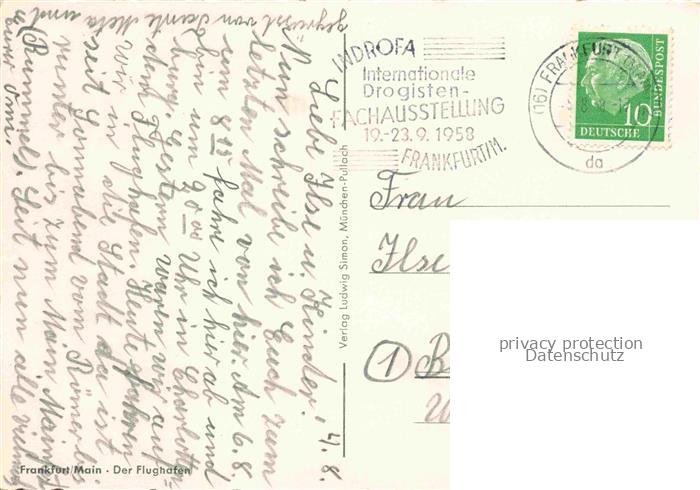 4. 8.
Liebe Ilse u. Kinder!
Nun schreibe ich Euch zum
letzten Mal von hier. Am 6. 8.
um 8 15 fahre ich hier ab und
bin um 20 00 Uhr in Charlotten
burg. Gestern waren wir auf
dem Flughafen. Heute fahren
wir in die Stadt, da ist
seit Sonnabend vom Römer bis
runter bis zum Main Mainfest
(Rummel). Seid nun alle vielmals
gegrüsst von Tante Meta und
Eurer Omi.
Frankfurt/Main · Der Flughafen
Verlag Ludwig Simon, München-Pullach
INDROFA
Internationale
Drogisten-
FACHAUSSTELLUNG
19.-23.9.1958
FRANKFURT/M.
(16) FRANKFURT
da
10
DEUTSCHE
BUNDESPOST
Frau
Ilse
1 B
privacy protection
Datenschutz